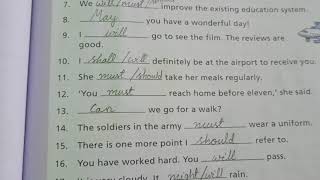 7. We will/must/should improve the existing education system.
8. May you have a wonderful day!
9. I will go to see the film. The reviews are
good.
10. I shall/will definitely be at the airport to receive you.
11. She must/should take her meals regularly.
12. 'You must reach home before eleven,' she said.
13. Can we go for a walk?
14. The soldiers in the army must wear a uniform.
15. There is one more point I should refer to.
16. You have worked hard. You will pass.
It is very cloudy. It might/will rain.